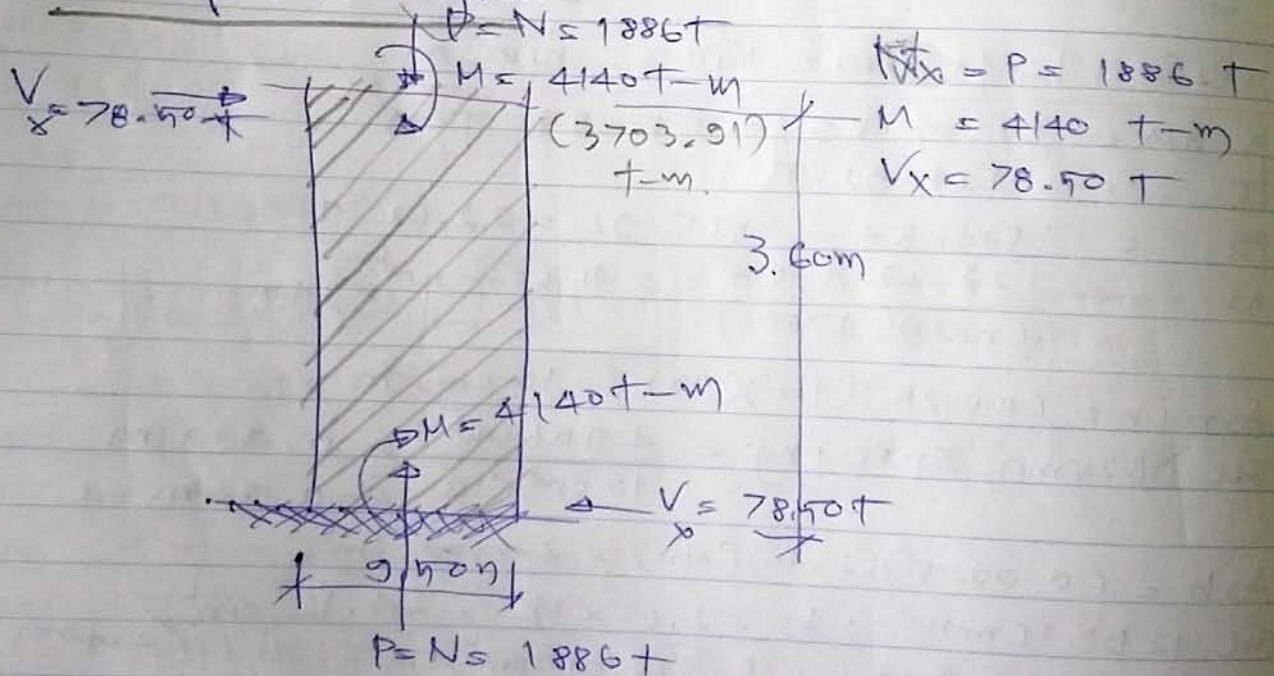 P=N= 1886T
M= 4140T-m
(3703.91)
t-m.
Vx=78.50T
Vx = P = 1886.T
M = 4140 T-m
Vx = 78.50 T
3.60m
M= 4140t-m
Vx = 78.50T
P=N= 1886t